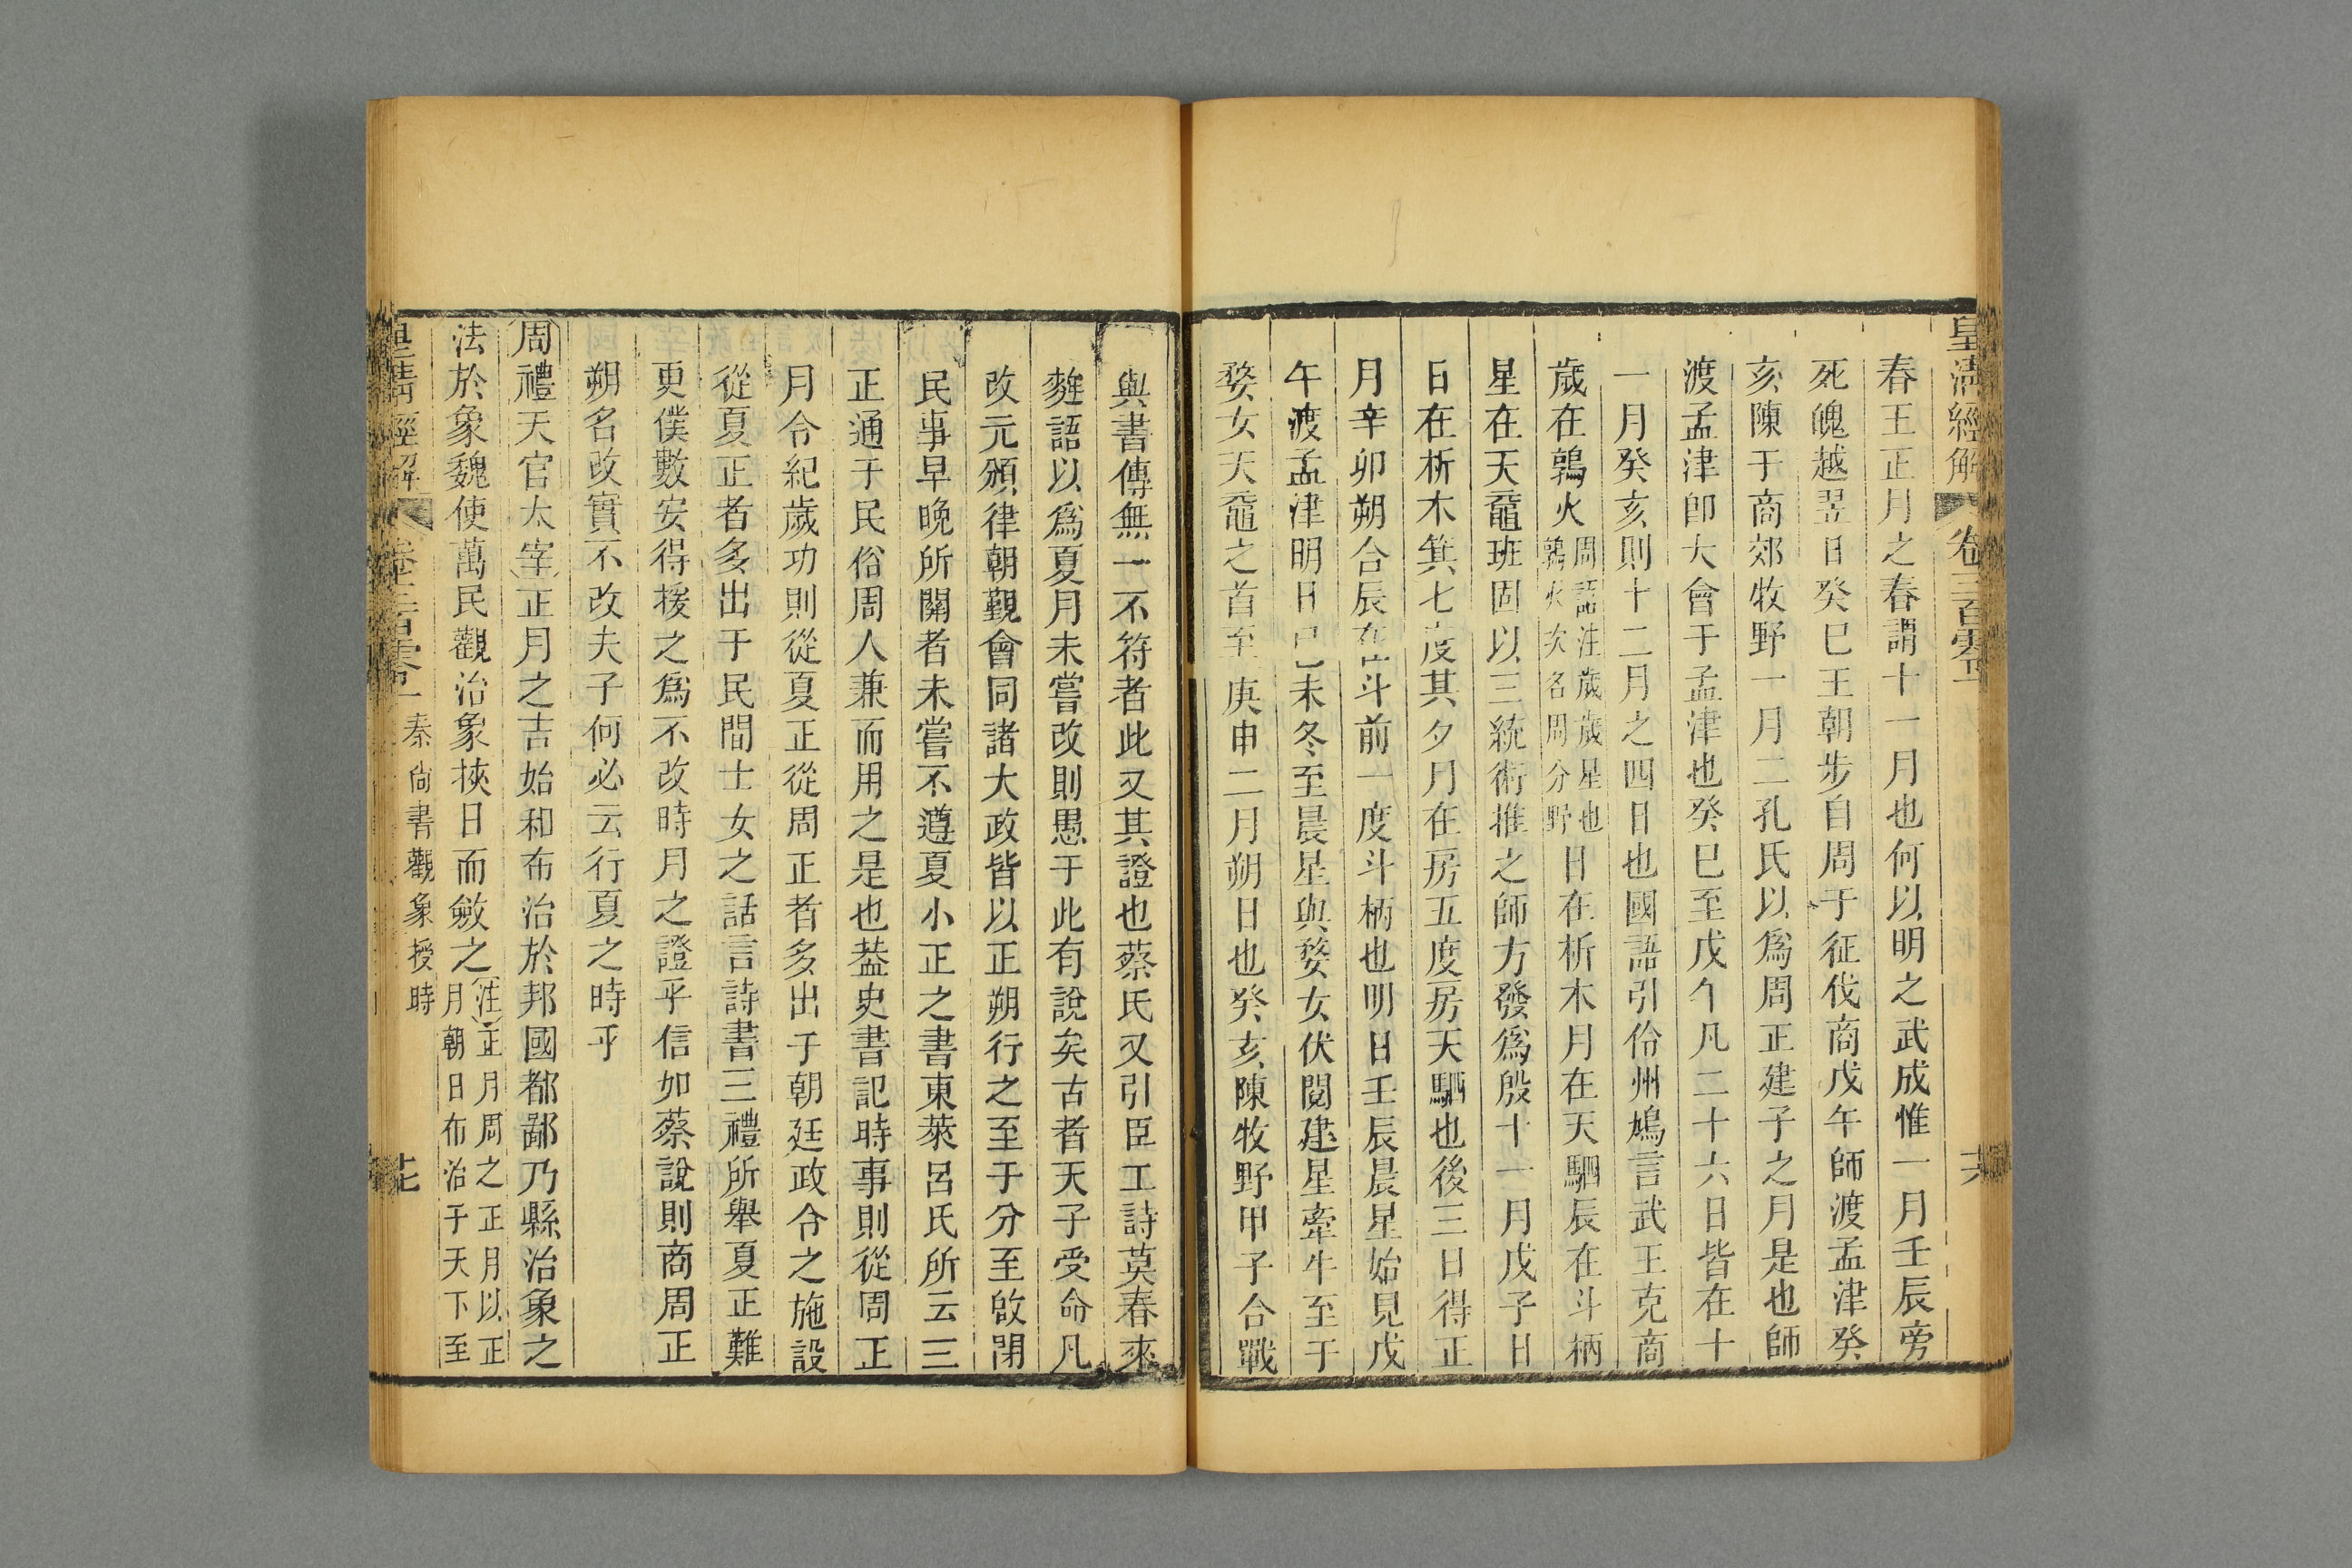 皇清經解 卷二百零一 六
春王正月之春謂十一月也何以明之武成惟一月壬辰旁
死魄越翌日癸巳王朝步自周于征伐商戊午師渡孟津癸
亥陳于商郊牧野一月二孔氏以爲周正建子之月是也師
渡孟津卽大會于孟津也癸巳至戊午凡二十六日皆在十
一月癸亥則十二月之四日也國語引伶州鳩言武王克商
歲在鶉火周語注歲歲星也鶉火次名周分野日在析木月在天駟辰在斗柄
星在天黿班固以三統術推之師方發爲殷十一月戊子日
日在析木箕七度其夕月在房五度房天駟也後三日得正
月辛卯朔合辰在斗前一度斗柄也明日壬辰晨星始見戊
午渡孟津明日己未冬至晨星與婺女伏閱建星牽牛至于
婺女天黿之首至庚申二月朔日也癸亥陳牧野甲子合戰
與書傳無一不符者此又其證也蔡氏又引臣工詩莫春來
麰語以爲夏月未嘗改則愚于此有說矣古者天子受命凡
改元頒律朝覲會同諸大政皆以正朔行之至于分至啟閉
民事早晚所關者未嘗不遵夏小正之書東萊呂氏所云三
正通于民俗周人兼而用之是也葢史書記時事則從周正
月令紀歲功則從夏正從周正者多出于朝廷政令之施設
從夏正者多出于民間士女之話言詩書三禮所舉夏正難
更僕數安得援之爲不改時月之證乎信如蔡說則商周正
朔名改實不改夫子何必云行夏之時乎
周禮天官太宰正月之吉始和布治於邦國都鄙乃縣治象之
法於象魏使萬民觀治象挾日而斂之注正月周之正月以正月朝日布治于天下至
皇清經解 卷二百零一 秦尙書觀象授時 七